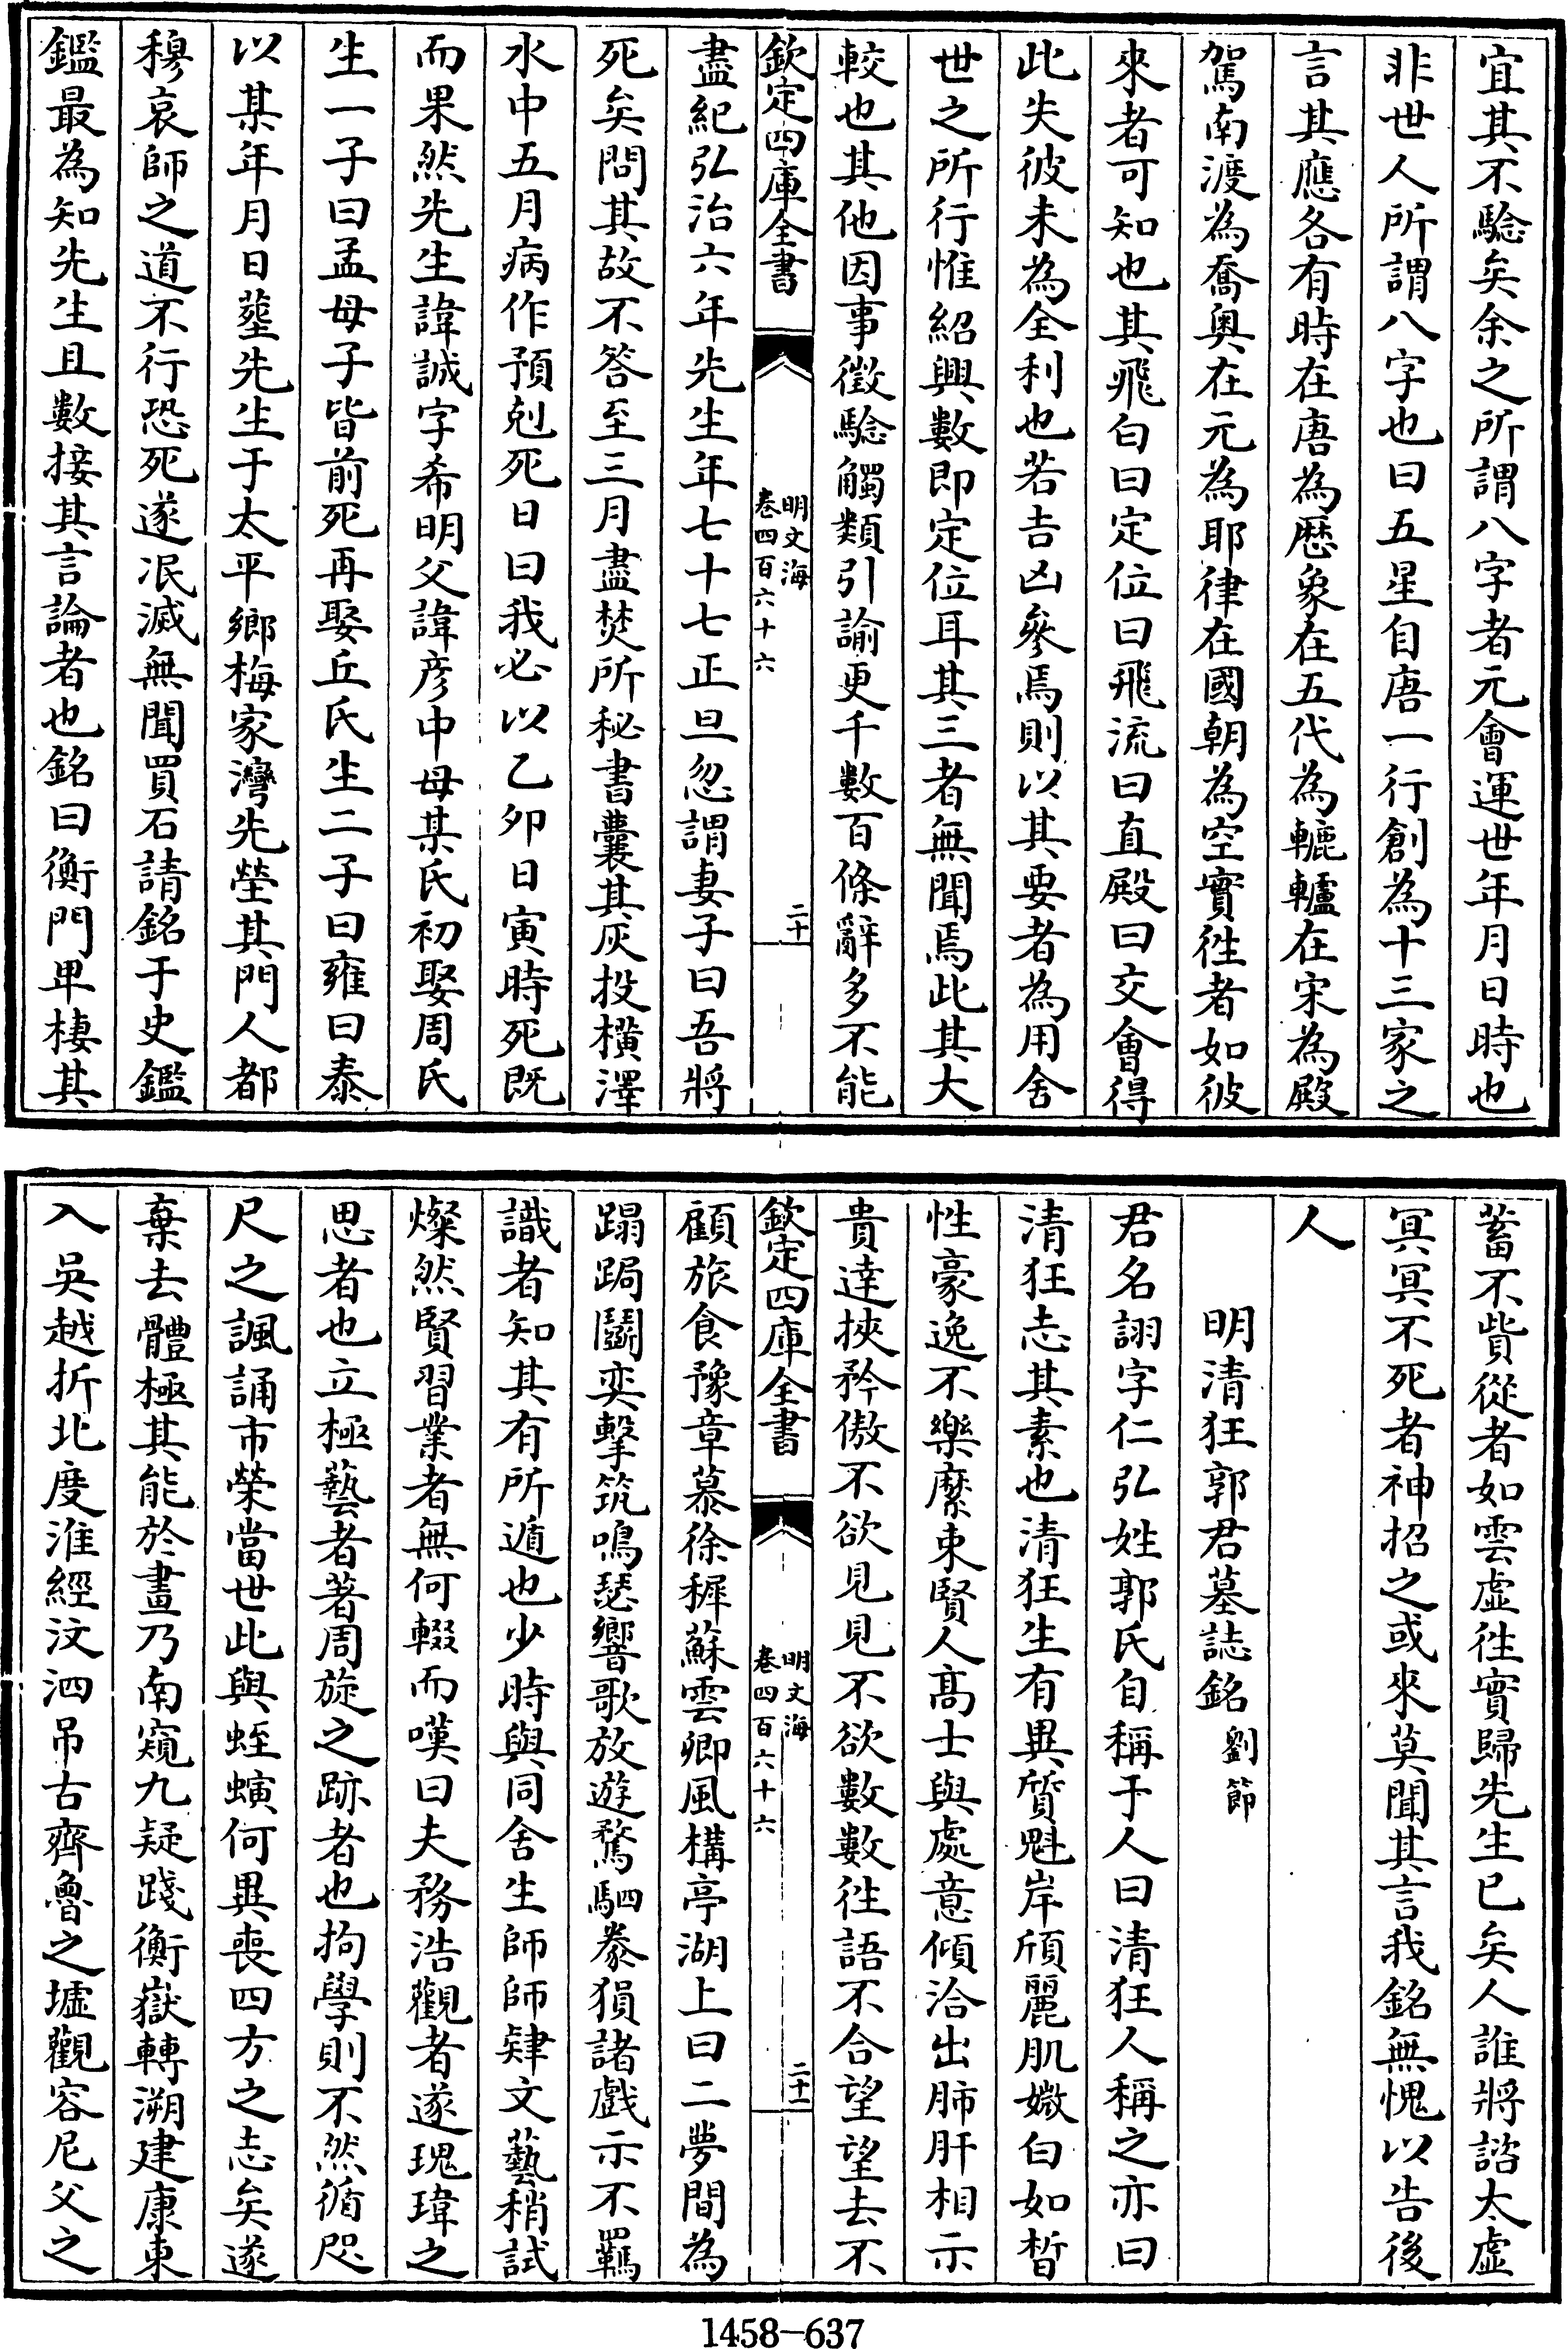 宜其不驗矣余之所謂八字者元會運世年月日時也
非世人所謂八字也曰五星自唐一行創為十三家之
言其應各有時在唐為厯象在五代為轆轤在宋為殿
駕南渡為喬奧在元為耶律在國朝為空實徃者如彼
來者可知也其飛白曰定位曰飛流曰直殿曰交會得
此失彼未為全利也若吉凶參焉則以其要者為用舍
世之所行惟紹興數即定位耳其三者無聞焉此其大
較也其他因事徵驗觸類引諭更千數百條辭多不能
欽定四庫全書
明文海
卷四百六十六
二十
盡紀弘治六年先生年七十七正旦忽謂妻子曰吾將
死矣問其故不答至三月盡焚所秘書囊其灰投橫澤
水中五月病作預剋死日曰我必以乙卯日寅時死既
而果然先生諱誠字希明父諱彥中母某氏初娶周氏
生一子曰孟母子皆前死再娶丘氏生二子曰雍曰泰
以某年月日塟先生于太平鄉梅家灣先塋其門人都
穆哀師之道不行恐死遂泯滅無聞買石請銘于史鑑
鑑最為知先生且數接其言論者也銘曰衡門卑棲其
蓄不貲從者如雲虛徃實歸先生已矣人誰將諮太虛
冥冥不死者神招之或來莫聞其言我銘無愧以告後
人
明清狂郭君墓誌銘 劉節
君名詡字仁弘姓郭氏自稱于人曰清狂人稱之亦曰
清狂志其素也清狂生有異質魁岸頎麗肌媺白如晳
性豪逸不樂縻束賢人高士與處意傾洽出肺肝相示
貴逹挾矜傲不欲見見不欲數數徃語不合望望去不
欽定四庫全書
明文海
卷四百六十六
二十一
顧旅食豫章慕徐穉蘇雲卿風構亭湖上曰二夢間為
蹋跼鬭奕擊筑鳴瑟響歌放遊騖駟豢狽諸戲示不羈
識者知其有所遁也少時與同舍生師師肄文藝稍試
燦然賢習業者無何輟而嘆曰夫務浩觀者遂瑰瑋之
思者也立極藝者著周旋之跡者也拘學則不然循咫
尺之諷誦市榮當世此與蛭螾何異喪四方之志矣遂
棄去體極其能於畫乃南窺九疑踐衡嶽轉溯建康東
入吳越折北度淮經汶泗吊古齊魯之墟觀容尼父之
1458-637